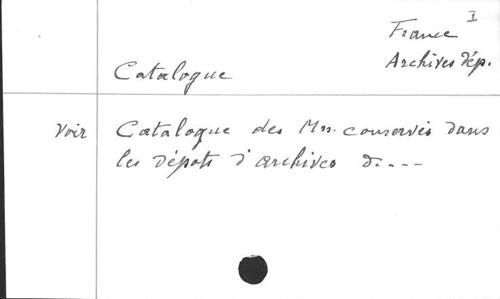 I
France
Archives Dép.
Catalogue
Voir Catalogue des Mss. conservés dans
les dépôts d'archives d. ---